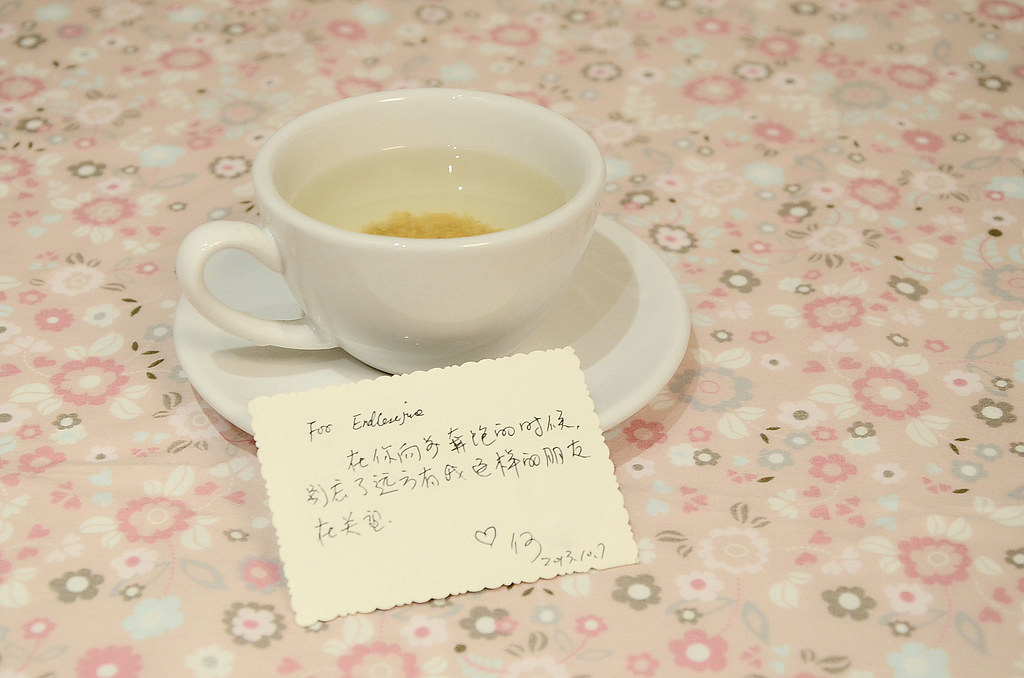 For Endlessjio
在你向前奔跑的时候,
别忘了远方有我这样的朋友
在关望.
♡ 何
2013.10.7